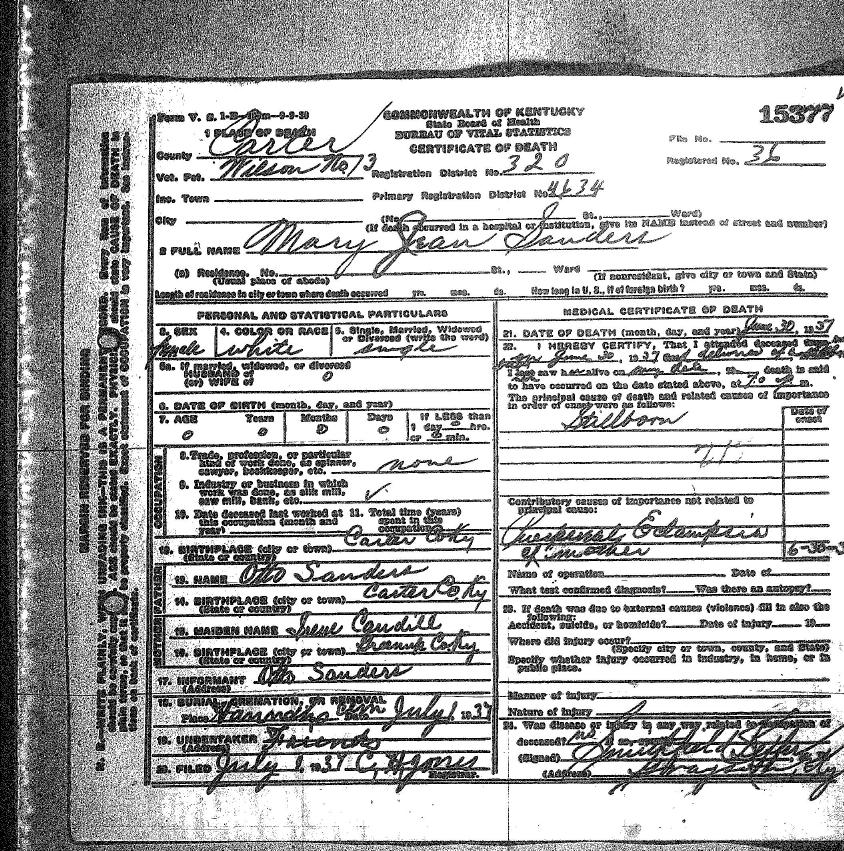 Form V. S. 1-B
15377
COMMONWEALTH OF KENTUCKY
State Board of Health
BUREAU OF VITAL STATISTICS
CERTIFICATE OF DEATH
File No.
Registered No. 36
1 PLACE OF DEATH
County Carter
Vot. Pct. Wilson No 13
Registration District No. 320
Inc. Town
Primary Registration District No. 4634
City (No. St., Ward)
(If death occurred in a hospital or institution, give its NAME instead of street and number)
2 FULL NAME Mary Jean Sanders
(a) Residence. No. St., Ward
(Usual place of abode) (If nonresident, give city or town and State)
Length of residence in city or town where death occurred yrs. mos. ds. How long in U. S., if of foreign birth? yrs. mos. ds.
PERSONAL AND STATISTICAL PARTICULARS
3. SEX 4. COLOR OR RACE 5. Single, Married, Widowed
or Divorced (write the word)
white single
5a. If married, widowed, or divorced
HUSBAND of
(or) WIFE of 0
6. DATE OF BIRTH (month, day, and year)
7. AGE Years Months Days If LESS than
1 day 0 hrs.
or 0 min.
0 0 0 0
8. Trade, profession, or particular
kind of work done, as spinner,
sawyer, bookkeeper, etc. none
9. Industry or business in which
work was done, as silk mill,
saw mill, bank, etc. ✓
10. Date deceased last worked at 11. Total time (years)
this occupation (month and spent in this
year) occupation
12. BIRTHPLACE (city or town) Carter Co Ky
(State or country)
13. NAME Otto Sanders
14. BIRTHPLACE (city or town) Carter Co, Ky
(State or country)
15. MAIDEN NAME Irene Caudill
16. BIRTHPLACE (city or town) Greenup Co Ky
(State or country)
17. INFORMANT Otto Sanders
(Address)
18. BURIAL, CREMATION, OR REMOVAL
Place Date July 1 1937
19. UNDERTAKER Friends
(Address)
20. FILED July 1, 1937 C, H Jones
Registrar.
MEDICAL CERTIFICATE OF DEATH
21. DATE OF DEATH (month, day, and year) June 30, 1937
22. I HEREBY CERTIFY, That I attended deceased from
June 30, 1937
I last saw h alive on death is said
to have occurred on the date stated above, at m.
The principal cause of death and related causes of importance
in order of onset were as follows:
Date of
onset
Stillborn
Contributory causes of importance not related to
principal cause:
Puerperal Eclampsia
of mother 6-30-3
Name of operation Date of
What test confirmed diagnosis? Was there an autopsy?
23. If death was due to external causes (violence) fill in also the
following:
Accident, suicide, or homicide? Date of injury 19
Where did injury occur?
(Specify city or town, county, and State)
Specify whether injury occurred in industry, in home, or in
public place.
Manner of injury
Nature of injury
24. Was disease or injury in any way related to occupation of
deceased? no
(Signed)
(Address)
MARGIN RESERVED FOR BINDING